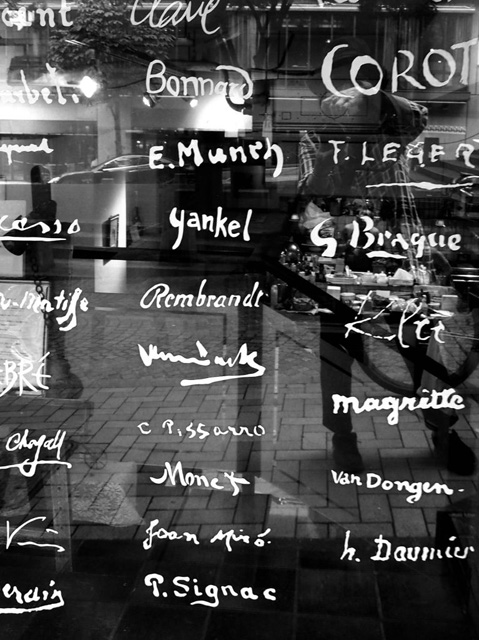 Clavé
Bonnard
COROT
E. Munch
F. LEGER
casso
yankel
G Braque
Rembrandt
Vlaminck
Klee
BRÉ
magritte
Chagall
C Pissarro
Monet
Van Dongen.
Joan Miró.
h. Daumier
P. Signac